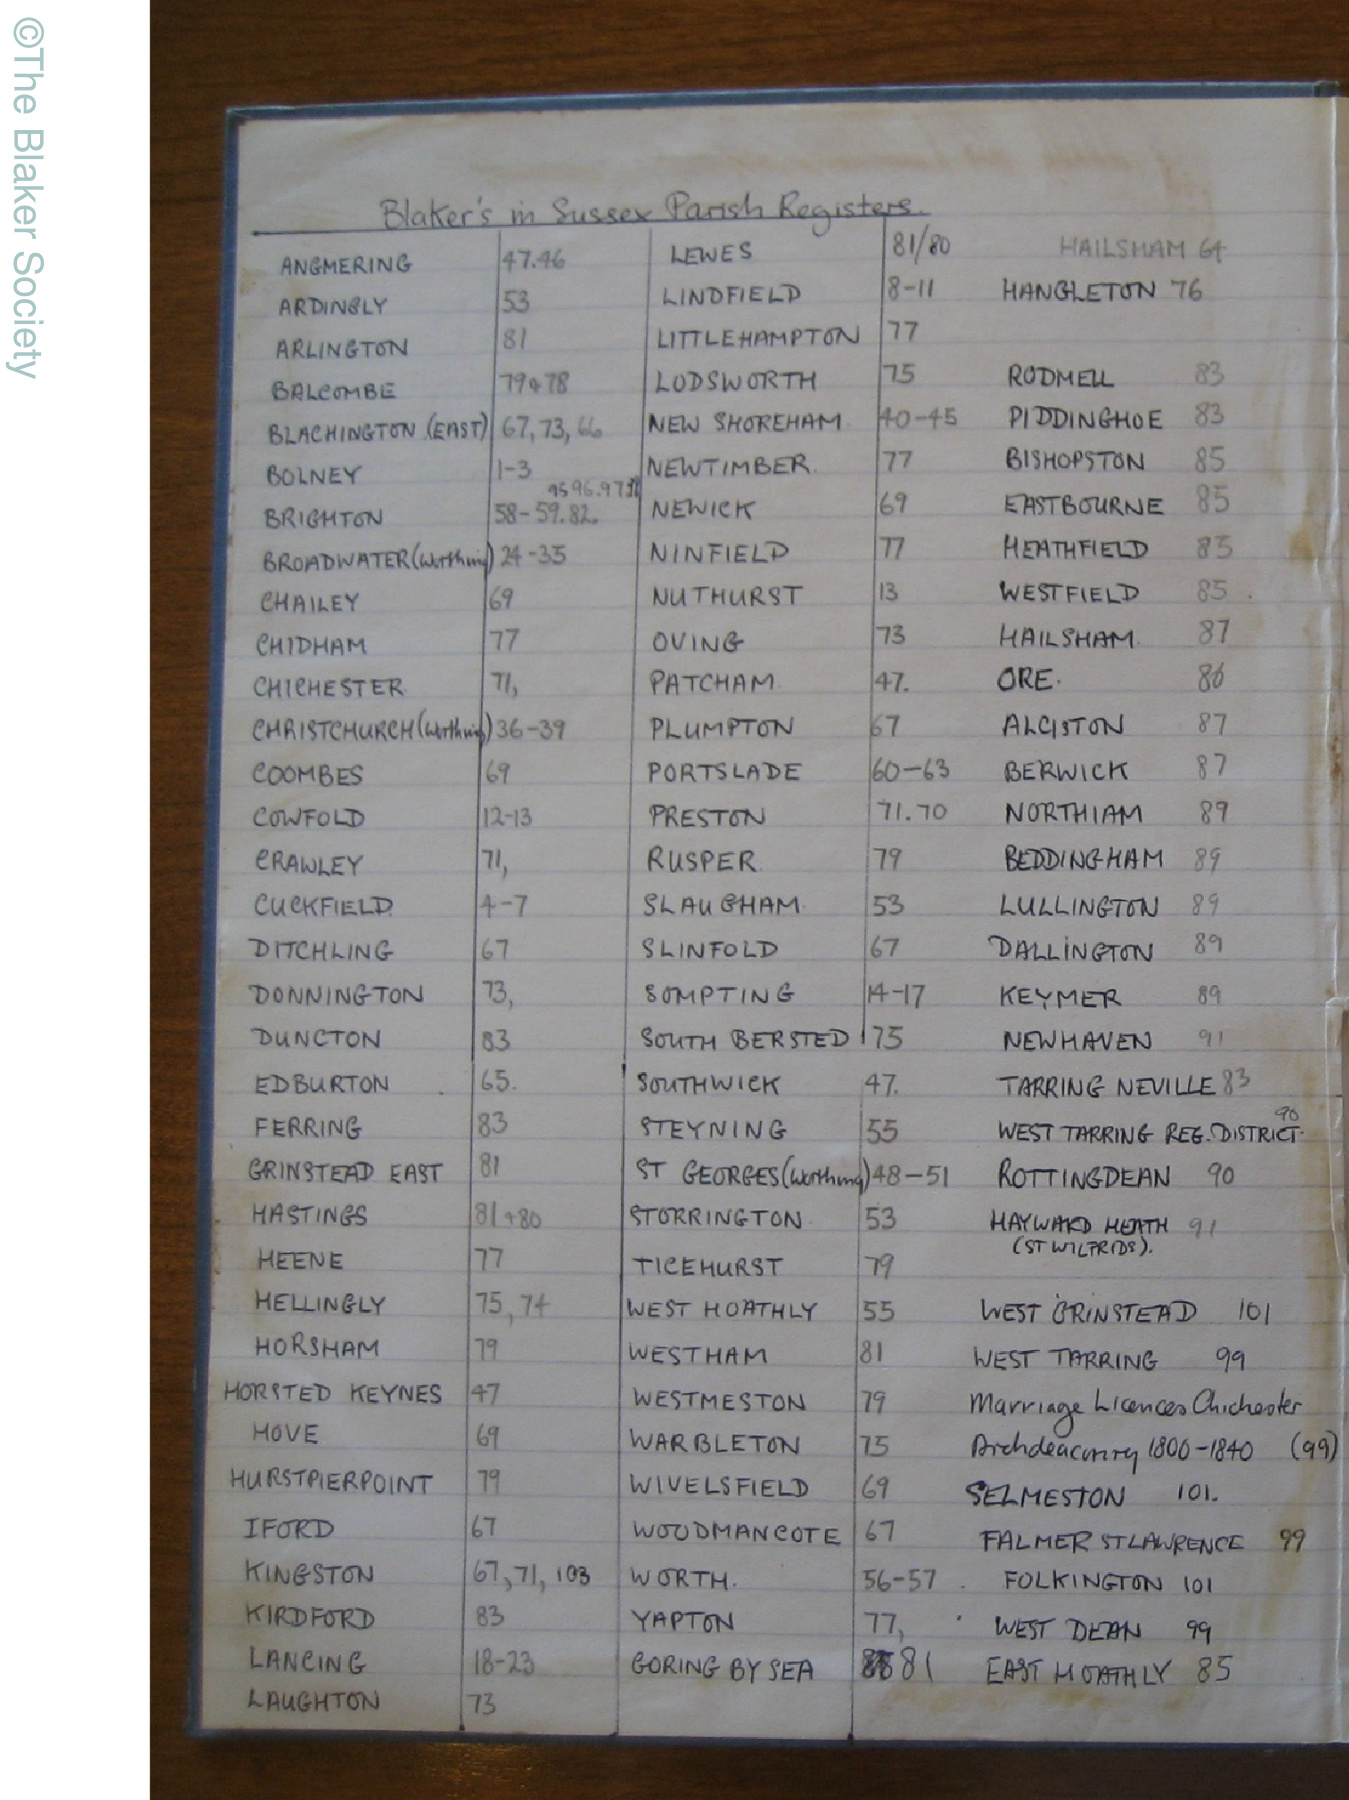 ©The Blaker Society
Blaker's in Sussex Parish Registers.
ANGMERING 47.46
ARDINGLY 53
ARLINGTON 81
BALCOMBE 79+78
BLACHINGTON (EAST) 67, 73, 66
BOLNEY 1-3
95 96.97
BRIGHTON 58-59.82.
BROADWATER (Worthing) 24-35
CHAILEY 69
CHIDHAM 77
CHICHESTER 71,
CHRISTCHURCH (Worthing) 36-39
COOMBES 69
COWFOLD 12-13
CRAWLEY 71,
CUCKFIELD 4-7
DITCHLING 67
DONNINGTON 73,
DUNCTON 83
EDBURTON 65.
FERRING 83
GRINSTEAD EAST 81
HASTINGS 81+80
HEENE 77
HELLINGLY 75, 74
HORSHAM 79
HORSTED KEYNES 47
HOVE 69
HURSTPIERPOINT 79
IFORD 67
KINGSTON 67, 71, 103
KIRDFORD 83
LANCING 18-23
LAUGHTON 73
LEWES 81/80
LINDFIELD 8-11
LITTLEHAMPTON 77
LODSWORTH 75
NEW SHOREHAM 40-45
NEWTIMBER. 77
NEWICK 69
NINFIELD 77
NUTHURST 13
OVING 73
PATCHAM. 47.
PLUMPTON 67
PORTSLADE 60-63
PRESTON 71.70
RUSPER. 79
SLAUGHAM. 53
SLINFOLD 67
SOMPTING 14-17
SOUTH BERSTED 75
SOUTHWICK 47.
STEYNING 55
ST GEORGES (Worthing) 48-51
STORRINGTON 53
TICEHURST 79
WEST HOATHLY 55
WESTHAM 81
WESTMESTON 79
WARBLETON 75
WIVELSFIELD 69
WOODMANCOTE 67
WORTH. 56-57
YAPTON 77,
GORING BY SEA 81
HAILSHAM 64
HANGLETON 76
RODMELL 83
PIDDINGHOE 83
BISHOPSTON 85
EASTBOURNE 85
HEATHFIELD 85
WESTFIELD 85
HAILSHAM. 87
ORE. 86
ALCISTON 87
BERWICK 87
NORTHIAM 89
BEDDINGHAM 89
LULLINGTON 89
DALLINGTON 89
KEYMER 89
NEWHAVEN 91
TARRING NEVILLE 83
WEST TARRING REG. DISTRICT. 90
ROTTINGDEAN 90
HAYWARD HEATH 91
(ST WILFRIDS).
WEST GRINSTEAD 101
WEST TARRING 99
Marriage Licences Chichester
Archdeaconry 1800-1840 (99)
SELMESTON 101.
FALMER ST LAWRENCE 99
FOLKINGTON 101
WEST DEAN 99
EAST HOATHLY 85